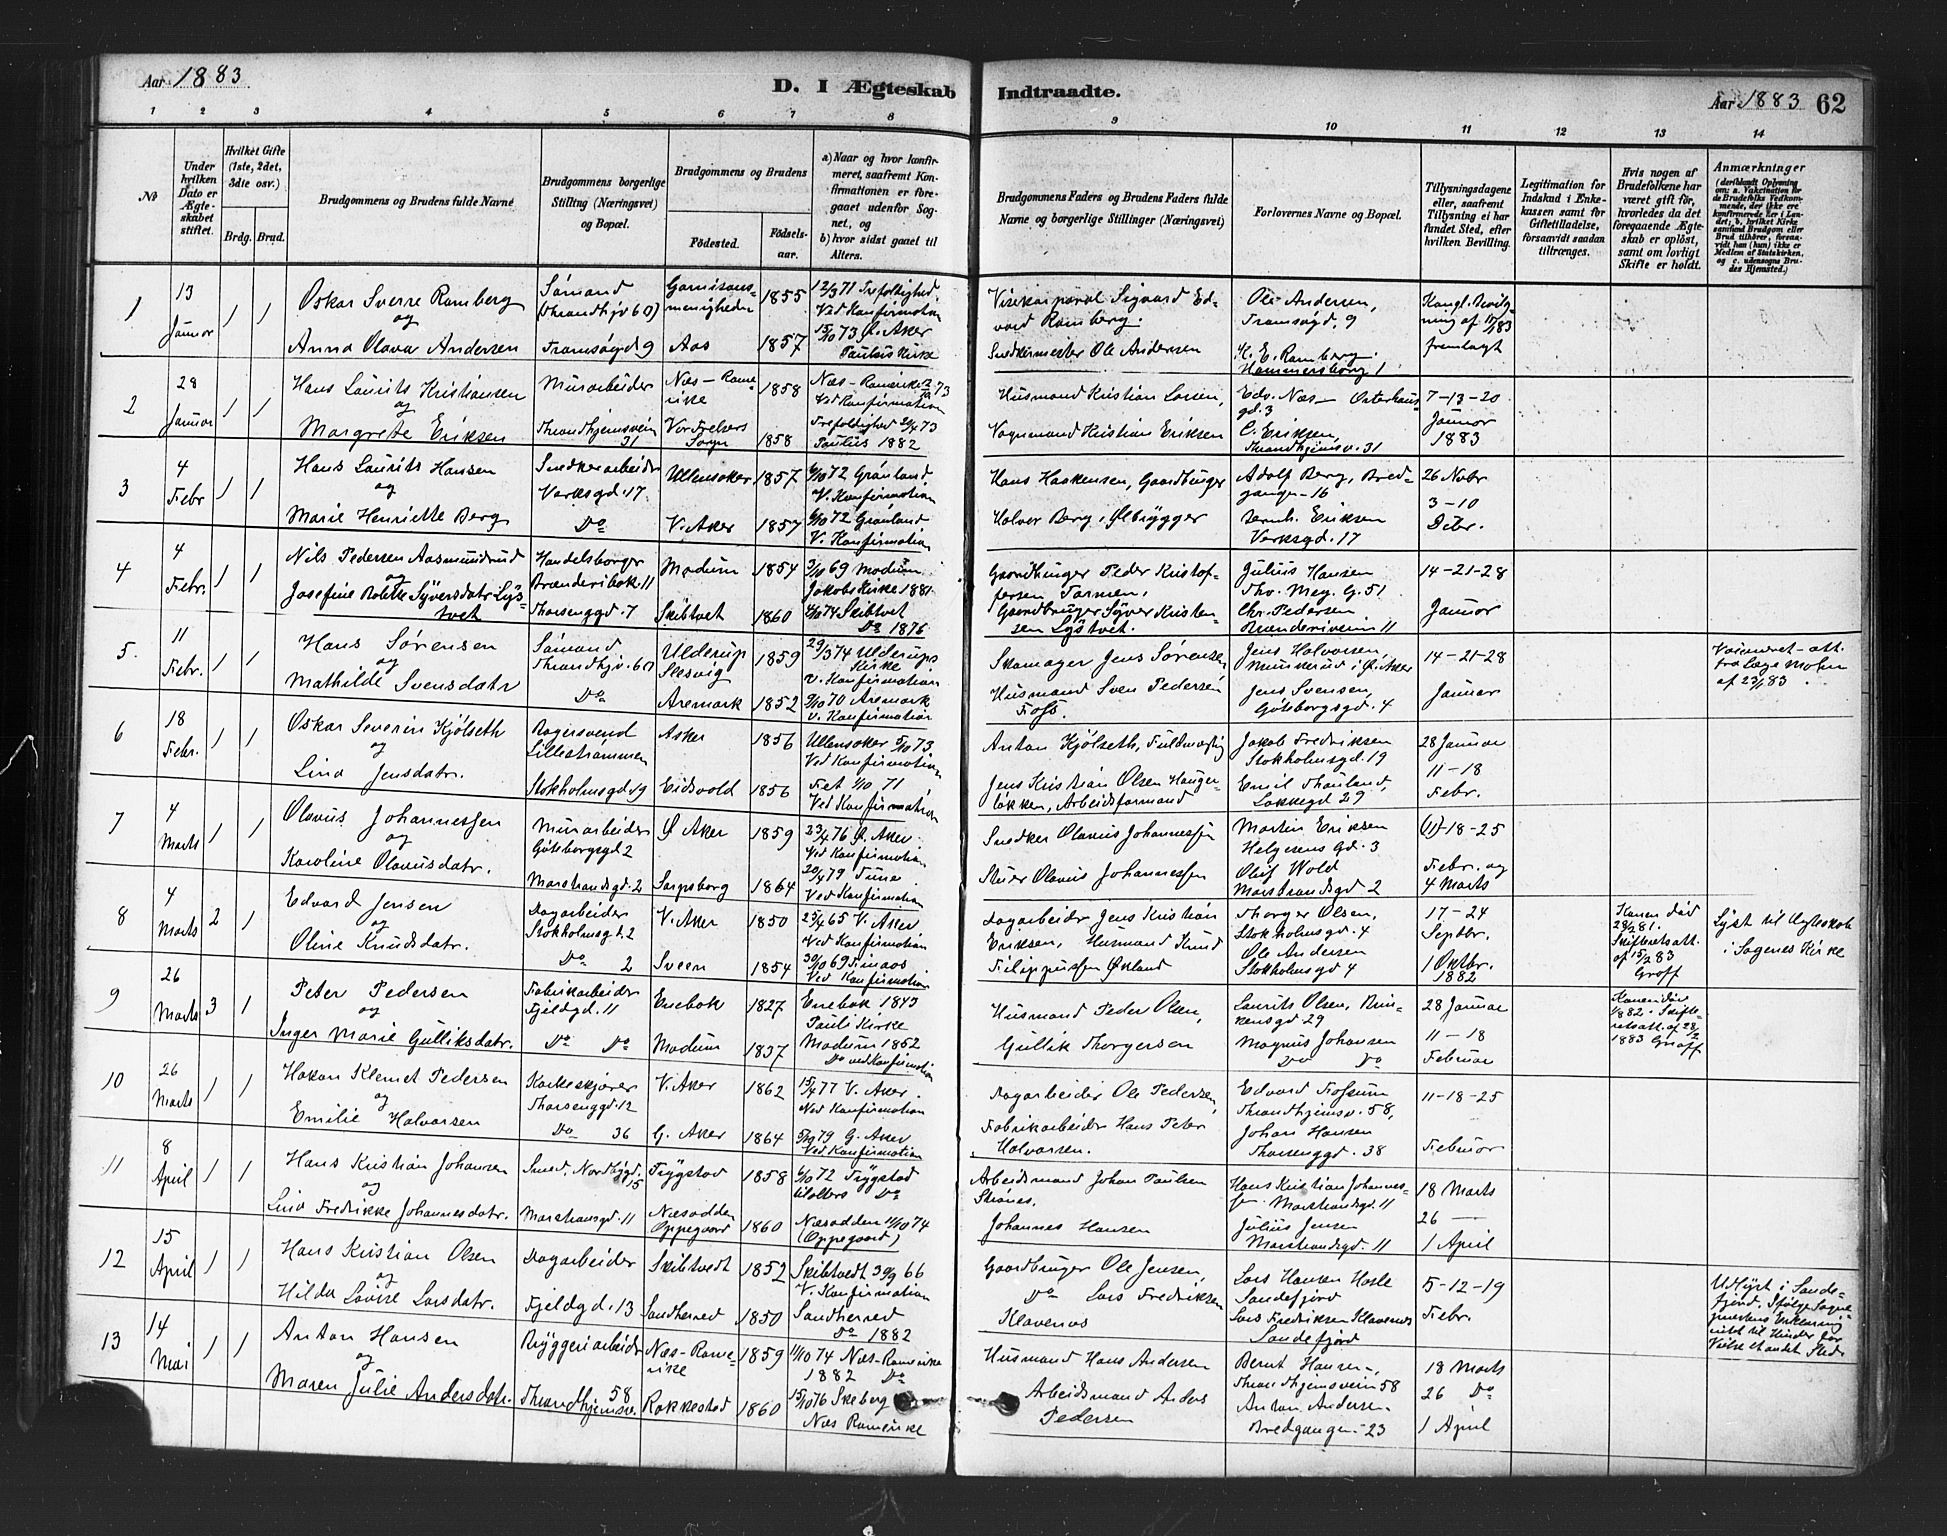 Aar 1883
D. I Ægteskab Indtraadte.
Aar 1883 62
1 2 3 4 5 6 7 8 9 10 11 12 13 14
No
Under hvilken Dato er Ægteskabet stiftet.
Hvilket Gifte (1ste, 2det, 3die osv.)
Brdg. Brud.
Brudgommens og Brudens fulde Navne
Brudgommens borgerlige Stilling (Næringsvei) og Bopæl.
Brudgommens og Brudens
Fødested. Fødselsaar.
a) Naar og hvor konfirmeret, saafremt Konfirmationen er foregaaet udenfor Sognet, og
b) hvor sidst gaaet til Alters.
Brudgommens Faders og Brudens Faders fulde Navne og borgerlige Stillinger (Næringsvei)
Forlovernes Navne og Bopæl.
Tillysningsdagene eller, saafremt Tillysning ei har fundet Sted, efter hvilken Bevilling.
Legitimation for Indskud i Enkekassen samt for Giftetilladelse, forsaavidt saadan tiltrænges.
Hvis nogen af Brudefolkene har været gift før, hvorledes da det foregaaende Ægteskab er opløst, samt om lovligt Skifte er holdt.
Anmærkninger
1
13 Januar
1 1
Oskar Sverre Ramberg
og
Anna Olava Andersen
Sømand
Thrandhjv 60
Tromsøgd 9
Garnisons-
menigheden
1855
Aas 1857
12/3 71 Trefoldighed
Ved Konfirmation
15/10 73 Ø. Aker
Paulus Kirke
Visekorporal Sigvard Ed-
vard Ramberg.
Snedkermester Ole Andersen
Ole Andersen,
Tromsøgd. 9
H. E. Ramberg.
Hammersborg 1
Kongl. Bevilg-
ning af
fremlagt
2
28 Januar
1 1
Hans Laurits Kristiansen
og
Margrete Eriksen
Murarbeider
Thrandhjemsvein
31
Næs - Rome-
rike
1858
Vor Frelsers
Sogn
1858
Næs - Romerike 73
Ved Konfirmation
Trefoldighed 73
Paulus 1882
Husmand Kristian Larsen,
Vognmand Kristian Eriksen
Edv. Næs - Osterhaus-
gd. 3
C. Eriksen,
Thrandhjemsv. 31
7-13-20
Januar
1883
3
4 Febr
1 1
Hans Laurits Hansen
og
Marie Henriette Berg
Snedkerarbeider
Verksgd. 17.
Do
Ullensaker 1857
V. Aker 1857
6/10 72 Grønland
V. Konfirmation
6/10 72 Grønland
V. Konfirmation
Hans Haakensen, Gaardbruger
Halvor Berg, Ølbrygger
Adolf Berg, Bred-
gangen - 16
Bernh. Eriksen
Verksgd. 17
26 Nobr
3 - 10
Debr.
4
4 Febr.
1 1
Nils Pedersen Aasmundrud
og
Josefine Bolette Syversdatr Lys-
tvet
Handelsborger
Brænderibak. 11
Thorsenggd. 7
Modum 1854
Skibtvet 1860
3/10 69 Modum
Jakobs Kirke 1881
4/10 74 Skibtvet
Do 1876
Gaardbruger Peder Kristof-
fersen
Gaardbruger Syver Kristen-
sen Lystvet.
Julius Hansen
Thv. Mey. G. 51
Chr. Pedersen
Brænderiveien 11
14-21-28
Januar
5.
11 Febr.
1 1
Hans Sørensen
og
Mathilde Svensdatr
Sømand
Thrandhjv. 60
Do
Ulderup
Slesvig
1859
Aremark 1852
29/3 74 Ulderups
Kirke
v. Konfirmation
9/10 70 Aremark
v. Konfirmation
Skomager Jens Sørensen
Husmand Sven Pedersen
Foss.
Jens Halvorsen,
Munkerud i Ø. Aker
Jens Svensen,
Göteborgsgd. 4
14-21-28
Januar
Vaccineret - att.
fra læge Mohn
af 23/1 83.
6
18 Febr.
1 1
Oskar Severin Kjølseth
og
Lina Jensdatr.
Bagersvend
Lillestrømmen
Stokholmsgd 19
Asker 1856
Eidsvold 1856
Ullensaker 5/10 73
Ved Konfirmation
Fet 1/10 71
Ved Konfirmation
Anton Kjølseth, Fuldmægtig
Jens Kristian Olsen Hauger-
løkken, Arbeidsformand
Jakob Fredriksen
Stokholmsgd. 19
Emil Thauland,
Løkkegd 29
28 Januar
11 - 18
Febr.
7
4 Marts
1 1
Olavus Johannessen
og
Karoline Olavusdatr.
Murarbeider
Göteborgsgd 2
Marstrandsgd. 2
Ø Aker 1859
Sarpsborg 1864
23/4 76 Ø. Aker
Ved Konfirmation
20/4 79 Tune
Ved Konfirmation
Snedker Olavus Johannessen
Stuer Olavus Johannessen
Martin Eriksen
Helgesens gd. 3
Oluf Wold
Marstrandsgd. 2
(11)-18-25
Febr. og
4 Marts
8
4 Marts
2 1
Edvard Jensen
og
Oline Knudsdatr.
Dagarbeider
Stokholmsgd. 2
Do 2
V. Aker 1850
Sveen 1854
23/4 65 V. Aker
Ved Konfirmation
30/10 69 Finaas
Ved Konfirmation
Dagarbeider Jens Kristian
Eriksen, Husmand Knud
Filippussen Økland
Thorger Olsen,
Stokholmsgd. 4
Ole Andersen
Stokholmsgd 4
17 - 24
Septbr.
1 Oktbr.
1882
Konen død
28/2 81.
Skifteretsatt.
af 15/2 83
Groff
Lyst til Ægteskab
i Sagenes Kirke
9
26 Marts
3 1
Peter Pedersen
og
Inger Marie Gulliksdatr.
Fabrikarbeider
Fjeldgd. 11
Do Do
Enebak 1827
Modum 1837
Enebak 1843
Pauli Kirke
Modum 1852
Do ved Konfirmation
Husmand Peder Olsen,
Gullik Thorgersen
Laurits Olsen, Brin-
kensgd 29
Magnus Johansen
Do Do
28 Januar
11 - 18
Februar
Konen død
1882 - Skifte-
retsatt. af 28/2
1883 Groff
10
26 Marts
1 1
Hakon Klemet Pedersen
og
Emilie Halvorsen
Korkeskjærer
Thorsenggd. 12
Do 36
V. Aker 1862
G. Aker 1864
15/4 77 V. Aker.
Ved Konfirmation
5/10 79 G. Aker
Ved Konfirmation
Dagarbeider Ole Pedersen,
Fabrikarbeider Hans Peter
Halvorsen.
Edvard Fossum
Thrandhjemsv. 58,
Johan Hansen
Thorsenggd. 38
11-18-25
Februar
11
8 April
1 1
Hans Kristian Johansen
og
Lina Fredrikke Johannesdatr.
Smed, Nordbygd.
15
Marstrandsgd. 11
Trygstad 1858
Næsodden
Oppegaard 1860
6/10 72 Trygstad
tilalters Do
Næsodden 11/10 74
(Oppegaard)
Arbeidsmand Johan Paulsen
Johannes Hansen
Hans Kristian Johannes-
sen Marstrandsgd. 11
Julius Jensen
Marstrandsgd. 11
18 Marts
26 —
1 April
12
15 April
1 1
Hans Kristian Olsen
og
Hilda Lovise Larsdatr.
Dagarbeider
Fjeldgd. 13
Skibtvedt 1852
Sandherred 1850
Skibtvedt 30/9 66
V. Konfirmation
Sandherred
Do 1882
Gaardbruger Ole Jensen,
Do Lars Fredriksen
Klavenes
Lars Hansen Hasle
Sandefjord
Lars Fredriksen Klavenes
Sandefjord
5-12-19
Febr.
Udlyst i Sande-
fjord. Ifølge Sogne-
prestens Erklæring
intet til Hinder for
Vielse et andet Sted
13
14 Mai
1 1
Anton Hansen
og
Maren Julie Andersdatr.
Bryggeriarbeider
58
Thrandhjemsv.
Næs-Rome-
rike
1859
Rakkestad 1860
11/10 74 Næs-Romerike
1882 Do
15/10 76 Skeberg
Næs Romerike
Husmand Hans Andersen
Arbeidsmand Anders
Pedersen
Bernt Hansen,
Thrandhjemsvein 58
Anton Andersen
Bredgangen - 23
18 Marts
26 Do
1 April